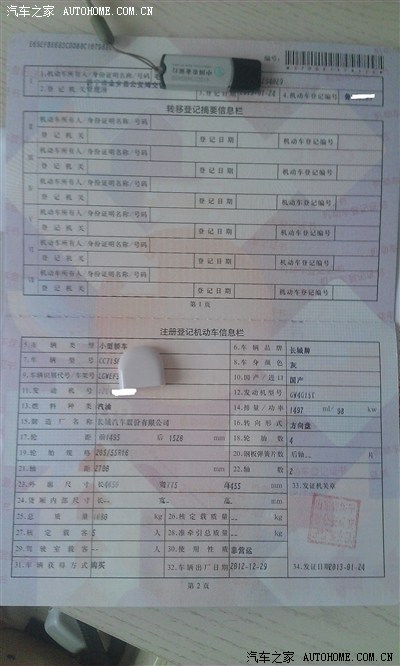 汽车之家 AUTOHOME.COM.CN 汽车之家 AUTOHOME.COM.CN
编号:
1.机动车所有人/身份证明名称/号码
2.登记机关 3.登记日期 2013-01-24 4.机动车登记编号
转移登记摘要信息栏
机动车所有人/身份证明名称/号码
登记机关 登记日期 机动车登记编号
机动车所有人/身份证明名称/号码
登记机关 登记日期 机动车登记编号
机动车所有人/身份证明名称/号码
登记机关 登记日期 机动车登记编号
机动车所有人/身份证明名称/号码
登记机关 登记日期 机动车登记编号
机动车所有人/身份证明名称/号码
登记机关 登记日期 机动车登记编号
机动车所有人/身份证明名称/号码
登记机关 登记日期 机动车登记编号
第1页
注册登记机动车信息栏
5.车辆类型 小型轿车 6.车辆品牌 长城牌
7.车辆型号 8.车身颜色 灰
9.车辆识别代号/车架号 10.国产/进口 国产
11.发动机号 12.发动机型号 GW4G15T
13.燃料种类 汽油 14.排量/功率 1497 ml/ 98 kw
15.制造厂名称 长城汽车股份有限公司 16.转向形式 方向盘
17.轮距 前1495 后1520 mm 18.轮胎数 4
19.轮胎规格 205/55R16 20.钢板弹簧片数 后轴-- 片
21.轴距 2700 mm 22.轴数 2
23.外廓尺寸 长 宽1775 高1455 mm 33.发证机关章
24.货厢内部尺寸 长-- 宽- 高- mm
25.总质量 kg 26.核定载质量 -- kg
27.核定载客 5 人 28.准牵引总质量 -- kg
29.驾驶室载客 -- 人 30.使用性质 非营运
31.车辆获得方式 购买 32.车辆出厂日期 2012-12-29 34.发证日期 2013-01-24
第2页
汽车之家 AUTOHOME.COM.CN 汽车之家 AUTOHOME.COM.CN